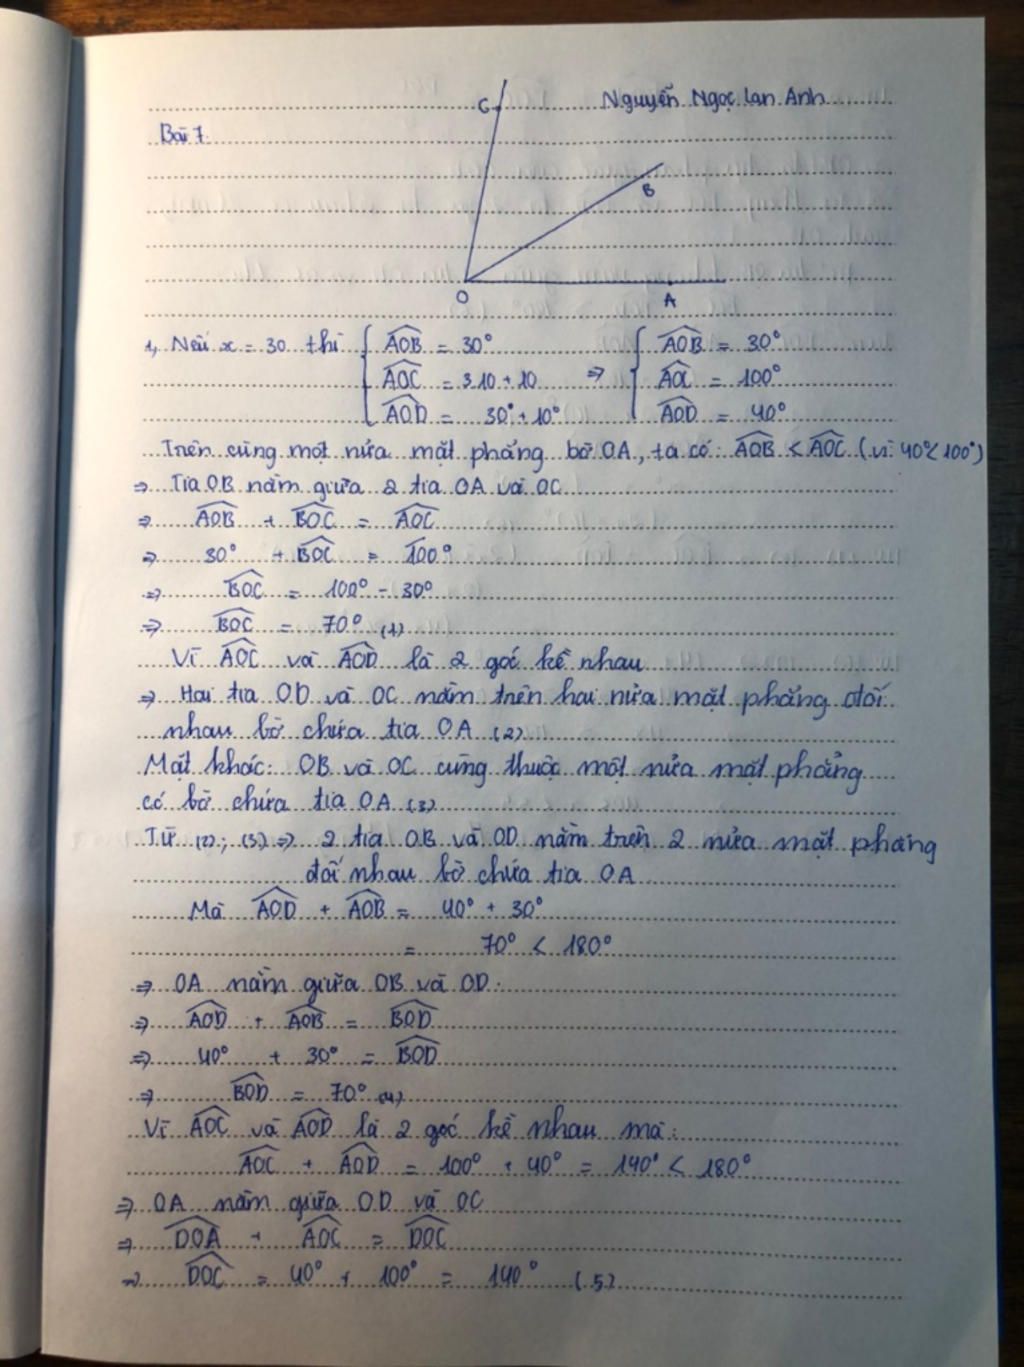 Nguyễn Ngọc Lan Anh
Bài 7.
C
B
O
A
1, Nếu x = 30 thì { AOB = 30° ⇒ { AOB = 30°
AOC = 3.10 + 10 AOC = 100°
AOD = 30° + 10° AOD = 40°
Trên cùng một nửa mặt phẳng bờ OA, ta có: AOB < AOC (vì 40° < 100°)
⇒ Tia OB nằm giữa 2 tia OA và OC
⇒ AOB + BOC = AOC
⇒ 30° + BOC = 100°
⇒ BOC = 100° - 30°
⇒ BOC = 70° (1)
Vì AOC và AOD là 2 góc kề nhau
⇒ Hai tia OD và OC nằm trên hai nửa mặt phẳng đối
nhau bờ chứa tia OA (2)
Mặt khác: OB và OC cùng thuộc một nửa mặt phẳng
có bờ chứa tia OA (3)
Từ (2); (3) ⇒ 2 tia OB và OD nằm trên 2 nửa mặt phẳng
đối nhau bờ chứa tia OA
Mà AOD + AOB = 40° + 30°
= 70° < 180°
⇒ OA nằm giữa OB và OD.
⇒ AOD + AOB = BOD
⇒ 40° + 30° = BOD
⇒ BOD = 70° (4)
Vì AOC và AOD là 2 góc kề nhau mà:
AOC + AOD = 100° + 40° = 140° < 180°
⇒ OA nằm giữa OD và OC
⇒ DOA + AOC = DOC
⇒ DOC = 40° + 100° = 140° (5)